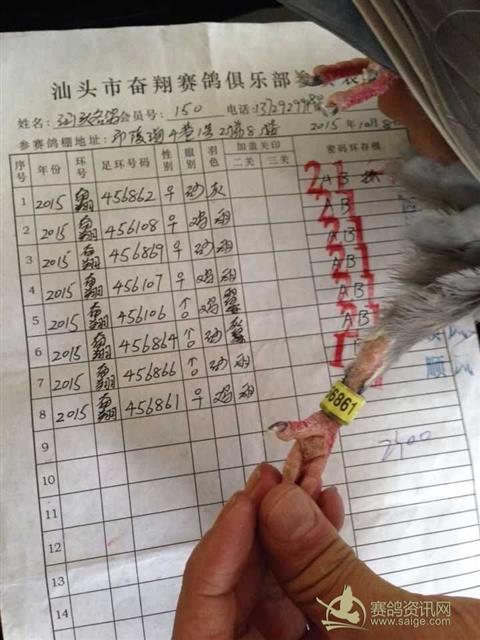 汕头市奋翔赛鸽俱乐部
姓名: 会员号: 150 电话:
参赛鸽棚地址: 2015年10月8
序号 年份 环号 足环号码 性别 眼别 羽色 加盖关印 二关 三关 密码环存根
1 2015 奋翔 456862 ♀ 砂 灰 2 AB
2 2015 奋翔 456108 ♀ 鸡 雨 AB
3 2015 奋翔 456869 ♀ 砂 雨 AB
4 2015 奋翔 456107 ♀ 鸡 雨 AB
5 2015 奋翔 456106 鸡 AB
6 2015 奋翔 456864 砂 AB
7 2015 奋翔 456866 砂 雨
8 2015 奋翔 456861 ♀ 鸡 雨
9
10
11
12
13
14
顺
6861
赛鸽资讯网
www.saige.com